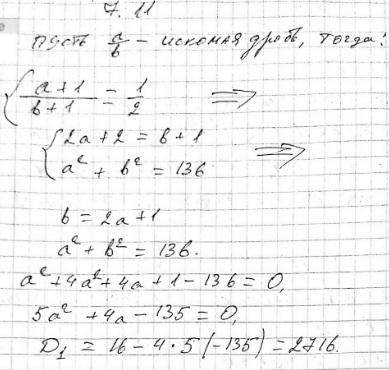 7.11
Пусть a/b – искомая дробь, тогда:
{ (a+1)/(b+1) = 1/2 ⇒
{ 2a+2 = b+1
a² + b² = 136 ⇒
b = 2a+1
a² + b² = 136.
a² + 4a² + 4a + 1 - 136 = 0,
5a² + 4a - 135 = 0,
D₁ = 16 - 4·5(-135) = 2716.